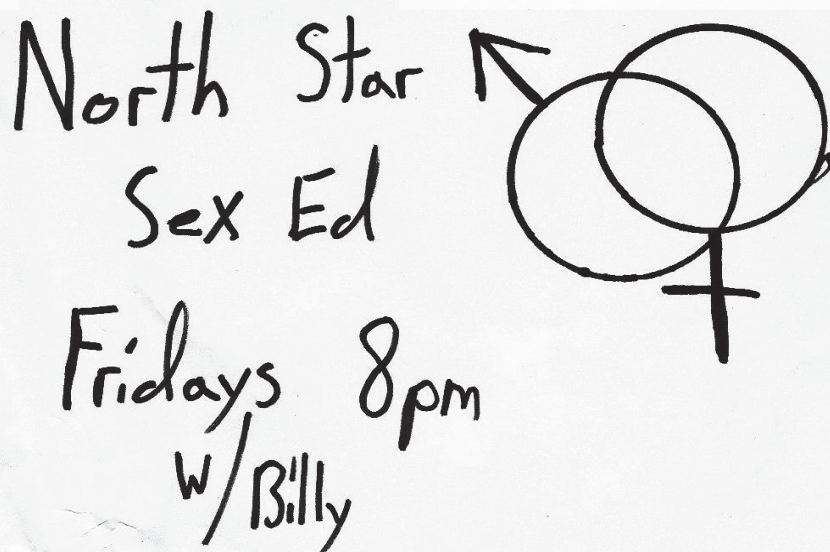 North Star
Sex Ed
Fridays 8pm
w/Billy